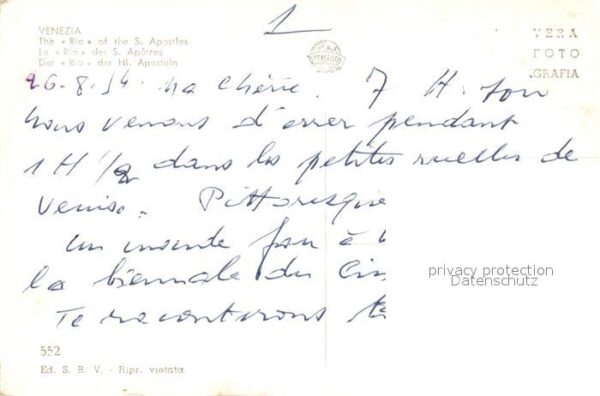 1
VENEZIA
The « Rio » of the S. Apostles
Le « Rio » des S. Apôtres
Der « Rio » der Hl. Aposteln
VERA
FOTO
GRAFIA
26-8-54. Ma Chérie. 7 H.
nous venons d'errer pendant
1 H 1/2 dans les petites ruelles de
Venise. Pittoresque
un
la biennale du Cin
Te raconterons
privacy protection
Datenschutz
552
Ed. S. B. V. - Ripr. vietata